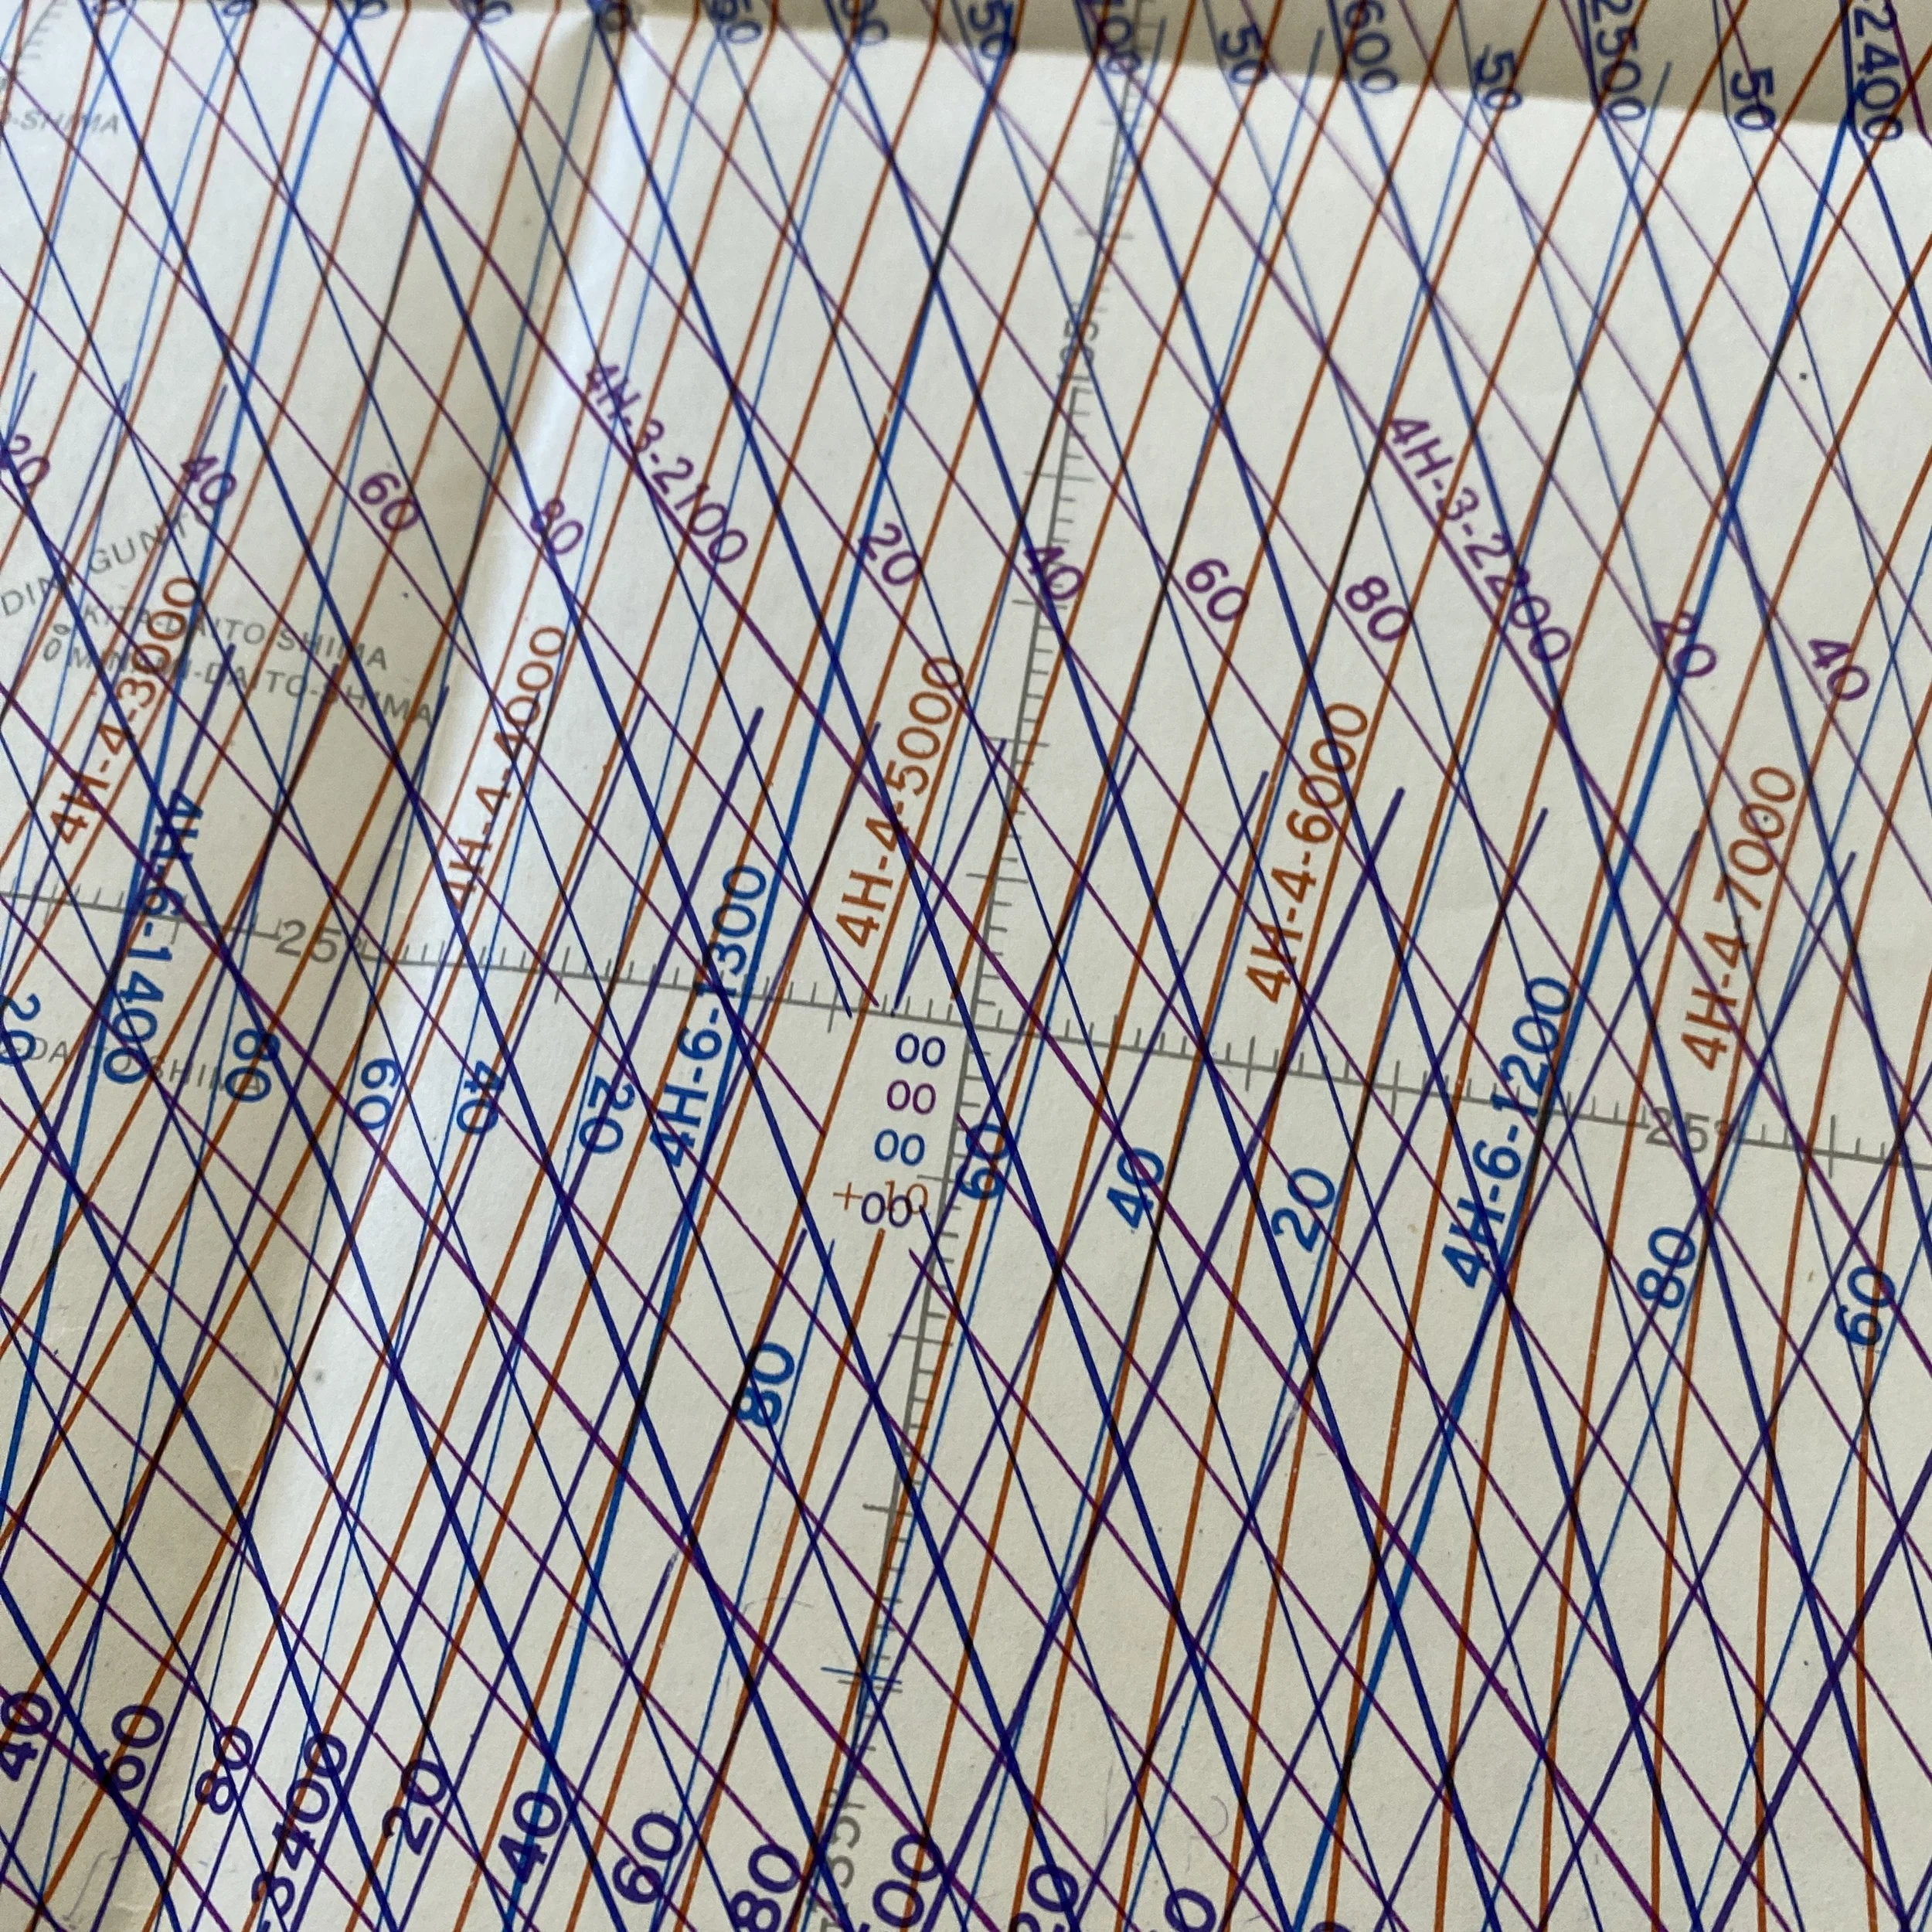 50
50
50
600
50
2500
50
2400
O-SHIMA
135°
4H-3-2100
4H-3-2200
20
40
60
80
20
40
60
80
20
40
KITA-DAITO SHIMA
MINAMI-DAITO-SHIMA
4H-4-3000
4H-4-4000
4H-4-5000
4H-4-6000
4H-4-7000
4H-6-1400
4H-6-1300
4H-6-1200
25°
25°
20
80
60
40
20
00
00
00
+10
00
60
40
20
80
60
80
40
60
80
3400
20
40
60
80
135°